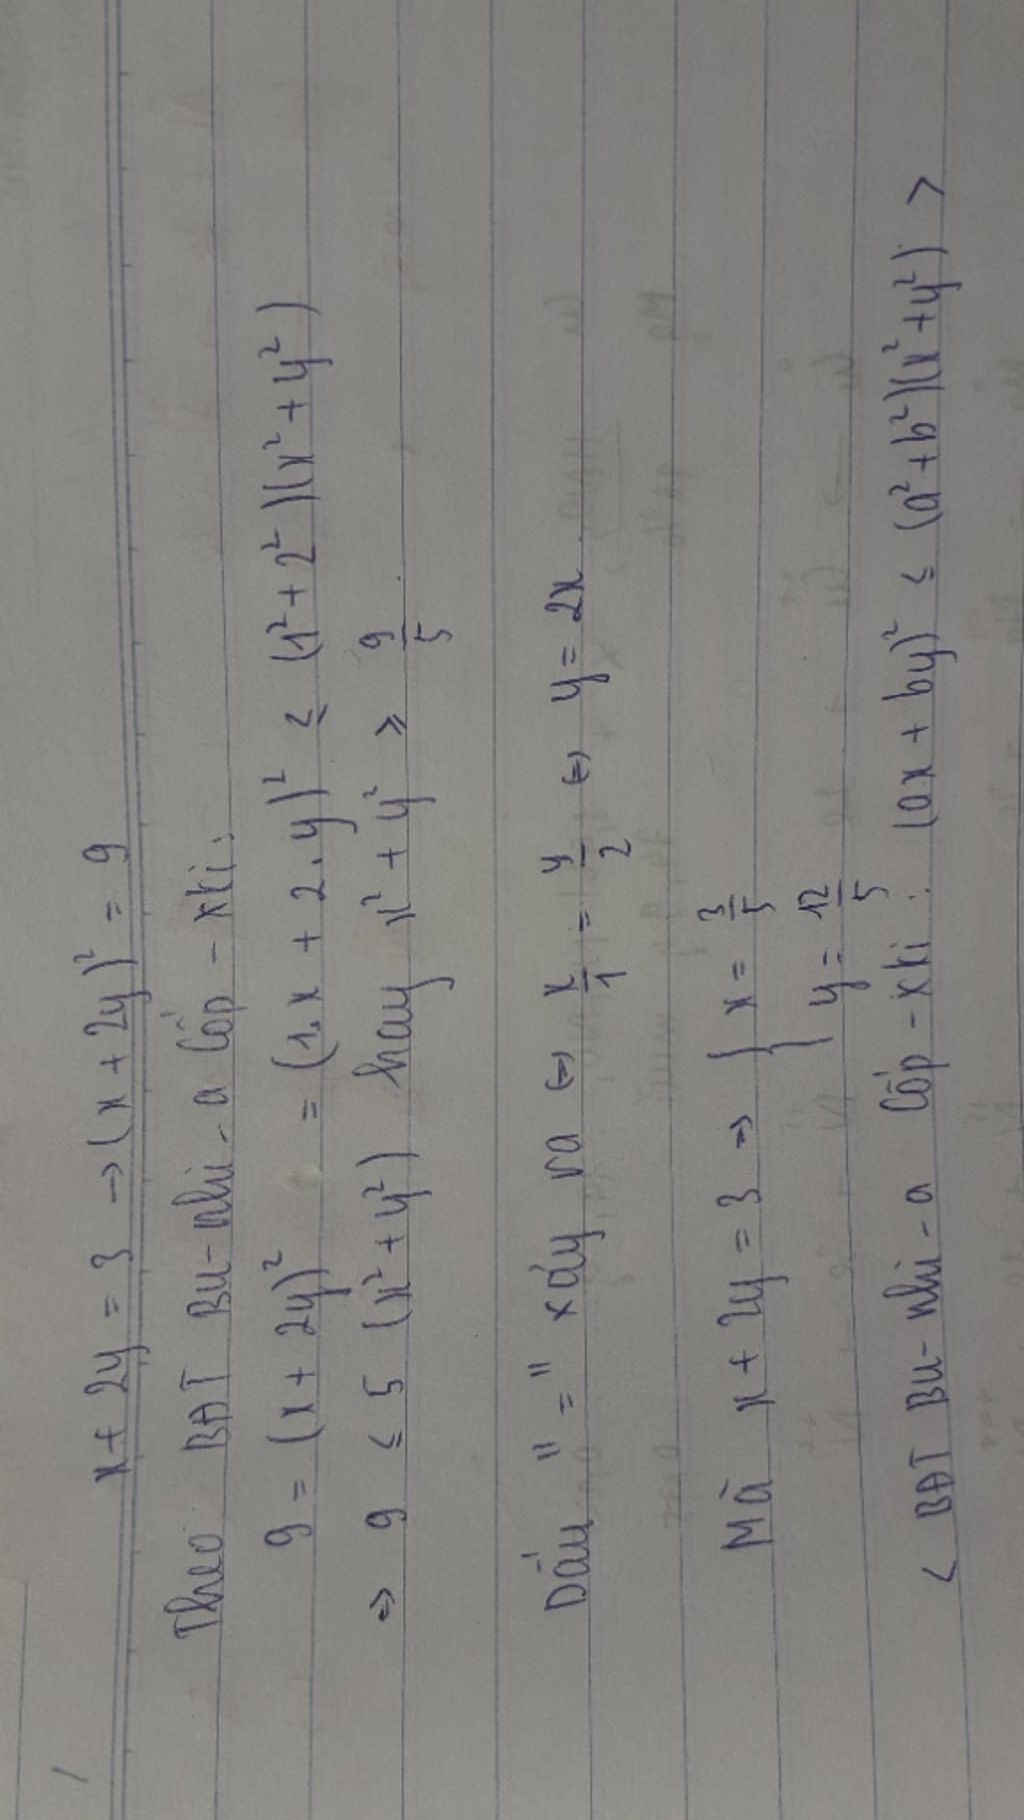 x + 2y = 3 → (x + 2y)² = 9
Theo BĐT Bu-nhi-a Cốp-xki:
9 = (x + 2y)² = (1.x + 2.y)² ≤ (1² + 2²)(x² + y²)
⇒ 9 ≤ 5 (x² + y²) hay x² + y² ≥ 9/5.
Dấu "=" xảy ra ⇔ x/1 = y/2 ⇔ y = 2x
Mà x + 2y = 3 ⇒ { x = 3/5
y = 12/5
< BĐT Bu-nhi-a Cốp-xki: (ax + by)² ≤ (a² + b²)(x² + y²) >